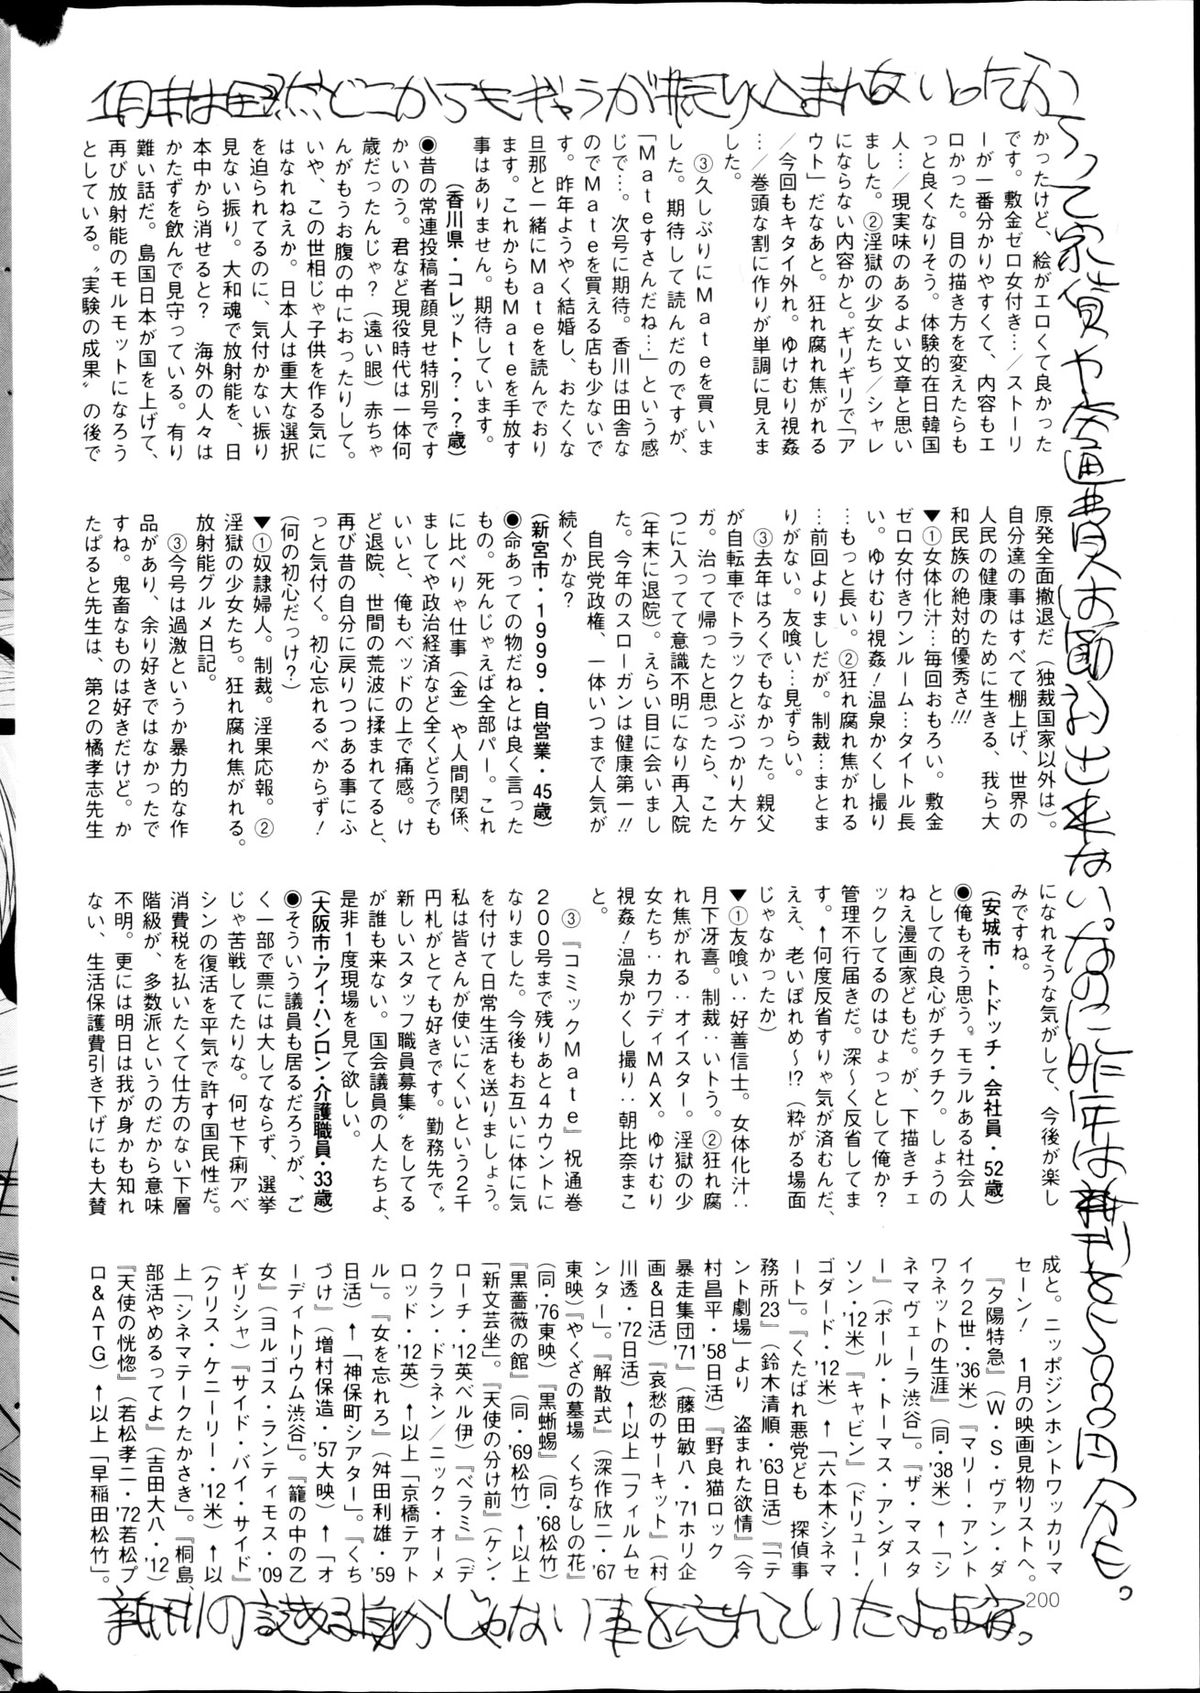 1月末は全然どこからもギャラが振り込まれない。ったからって家賃や交通費は節約出来ない。なのに昨年は新刊を5000円分も。
新刊の読める身分じゃない事を忘れていたよ。反省。
かったけど、絵がエロくて良かった
です。敷金ゼロ女付き…/ストーリ
ーが一番分かりやすくて、内容もエ
ロかった。目の描き方を変えたらも
っと良くなりそう。体験的在日韓国
人…/現実味のあるよい文章と思い
ました。②淫獄の少女たち/シャレ
にならない内容かと。ギリギリで「ア
ウト」だなあと。狂れ腐れ焦がれる
/今回もキタイ外れ。ゆけむり視姦
…/巻頭な割に作りが単調に見えま
した。
③久しぶりにMateを買いま
した。期待して読んだのですが、
「Mateすさんだね…」という感
じで…。次号に期待。香川は田舎な
のでMateを買える店も少ないで
す。昨年ようやく結婚し、おたくな
旦那と一緒にMateを読んでおり
ます。これからもMateを手放す
事はありません。期待しています。
(香川県・コレット・?・?歳)
●昔の常連投稿者顔見せ特別号です
かいのう。君など現役時代は一体何
歳だったんじゃ?(遠い眼)赤ちゃ
んがもうお腹の中におったりして。
いや、この世相じゃ子供を作る気に
はなれねえか。日本人は重大な選択
を迫られてるのに、気付かない振り
見ない振り。大和魂で放射能を、日
本中から消せると? 海外の人々は
かたずを飲んで見守っている。有り
難い話だ。島国日本が国を上げて、
再び放射能のモルモットになろう
としている。〝実験の成果〟の後で
原発全面撤退だ(独裁国家以外は)。
自分達の事はすべて棚上げ、世界の
人民の健康のために生きる、我ら大
和民族の絶対的優秀さ!!!
▼①女体化汁…毎回おもろい。敷金
ゼロ女付きワンルーム…タイトル長
い。ゆけむり視姦!温泉かくし撮り
…もっと長い。②狂れ腐れ焦がれる
…前回よりましだが。制裁…まとま
りがない。友喰い…見ずらい。
③去年はろくでもなかった。親父
が自転車でトラックとぶつかり大ケ
ガ。治って帰ったと思ったら、こた
つに入ってて意識不明になり再入院
(年末に退院)。えらい目に会いまし
た。今年のスローガンは健康第一!!
自民党政権、一体いつまで人気が
続くかな?
(新宮市・1999・自営業・45歳)
●命あっての物だねとは良く言った
もの。死んじゃえば全部パー。これ
に比べりゃ仕事(金)や人間関係、
ましてや政治経済など全くどうでも
いいと、俺もベッドの上で痛感。け
ど退院、世間の荒波に揉まれてると、
再び昔の自分に戻りつつある事にふ
っと気付く。初心忘れるべからず!
(何の初心だっけ?)
▼①奴隷婦人。制裁。淫果応報。②
淫獄の少女たち。狂れ腐れ焦がれる。
放射能グルメ日記。
③今号は過激というか暴力的な作
品があり、余り好きではなかったで
すね。鬼畜なものは好きだけど。か
たぱると先生は、第2の橘孝志先生
になれそうな気がして、今後が楽し
みですね。
(安城市・トドッチ・会社員・52歳)
●俺もそう思う。モラルある社会人
としての良心がチクチク。しょうの
ねえ漫画家どもだ。が、下描きチェ
ックしてるのはひょっとして俺か?
管理不行届きだ。深〜く反省してま
す。↑何度反省すりゃ気が済むんだ、
ええ、老いぼれめ〜!?(粋がる場面
じゃなかったか)
▼①友喰い‥好善信士。女体化汁‥
月下冴喜。制裁‥いトう。②狂れ腐
れ焦がれる‥オイスター。淫獄の少
女たち‥カワディMAX。ゆけむり
視姦!温泉かくし撮り‥朝比奈まこ
と。
③『コミックMate』祝通巻
200号まで残りあと4カウントに
なりました。今後もお互いに体に気
を付けて日常生活を送りましょう。
私は皆さんが使いにくいという2千
円札がとても好きです。勤務先で〝
新しいスタッフ職員募集〟をしてる
が誰も来ない。国会議員の人たちよ、
是非1度現場を見て欲しい。
(大阪市・アイ・ハンロン・介護職員・33歳)
●そういう議員も居るだろうが、ご
く一部で票には大してならず、選挙
じゃ苦戦してたりな。何せ下痢アベ
シンの復活を平気で許す国民性だ。
消費税を払いたくて仕方のない下層
階級が、多数派というのだから意味
不明。更には明日は我が身かも知れ
ない、生活保護費引き下げにも大賛
成と。ニッポジンホントワッカリマ
セーン! 1月の映画見物リストへ。
『夕陽特急』(W・S・ヴァン・ダ
イク2世・'36米)『マリー・アント
ワネットの生涯』(同・'38米)↑「シ
ネマヴェーラ渋谷」。『ザ・マスタ
ー』(ポール・トーマス・アンダー
ソン・'12米)『キャビン』(ドリュー・
ゴダード・'12米)↑「六本木シネマ
ート」。『くたばれ悪党ども 探偵事
務所23』(鈴木清順・'63日活)『テ
ント劇場』より 盗まれた欲情』(今
村昌平・'58日活)『野良猫ロック
暴走集団'71』(藤田敏八・'71ホリ企
画&日活)『哀愁のサーキット』(村
川透・'72日活)↑以上「フィルムセ
ンター」。『解散式』(深作欣二・'67
東映)『やくざの墓場 くちなしの花』
(同・'76東映)『黒蜥蜴』(同・'68松竹)
『黒薔薇の館』(同・'69松竹)↑以上
「新文芸坐」。『天使の分け前』(ケン・
ローチ・'12英ベル伊)『ベラミ』(デ
クラン・ドネラン/ニック・オーメ
ロッド・'12英)↑以上「京橋テアト
ル」。『女を忘れろ』(舛田利雄・'59
日活)↑「神保町シアター」。『くち
づけ』(増村保造・'57大映)↑「オ
ーディトリウム渋谷」。『籠の中の乙
女』(ヨルゴス・ランティモス・'09
ギリシャ)『サイド・バイ・サイド』
(クリス・ケニーリー・'12米)↑以
上「シネマテークたかさき」。『桐島、
部活やめるってよ』(吉田大八・'12)
『天使の恍惚』(若松孝二・'72若松プ
ロ&ATG)↑以上「早稲田松竹」。
200